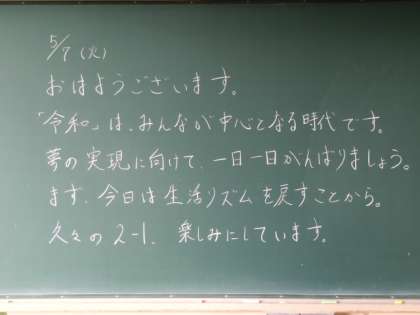 5/7(火)
おはようございます。
「令和」は、みんなが中心となる時代です。
夢の実現に向けて、一日一日がんばりましょう。
まず、今日は生活リズムを戻すことから。
久々の2-1、楽しみにしています。